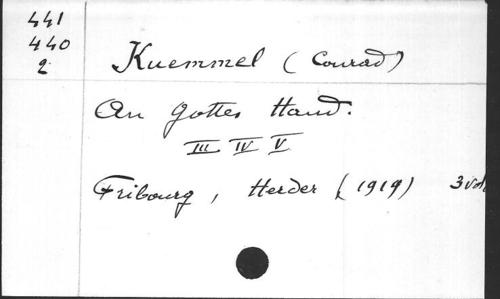 441
440
2
Kuemmel (Conrad)
An Gottes Hand.
III IV V
Fribourg, Herder (1919) 3 vol